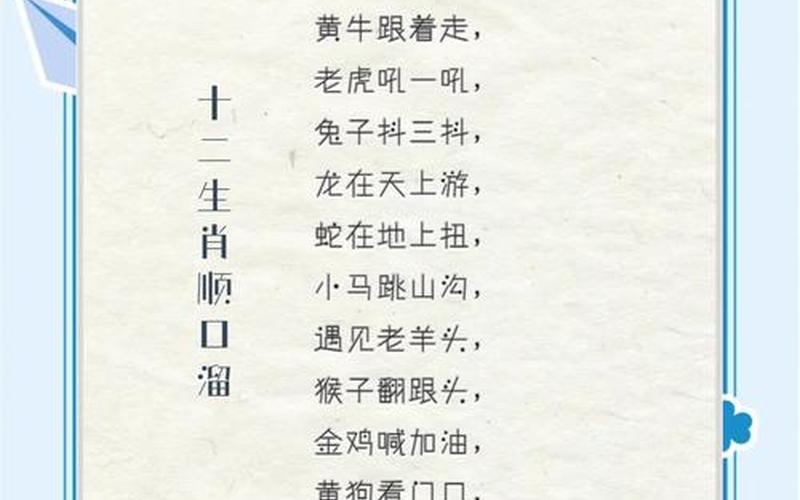 十二生肖顺口溜
黄牛跟着走，
老虎吼一吼，
兔子抖三抖，
龙在天上游，
蛇在地上扭，
小马跳山沟，
遇见老羊头，
猴子翻跟头，
金鸡喊加油，
黄狗看门口，